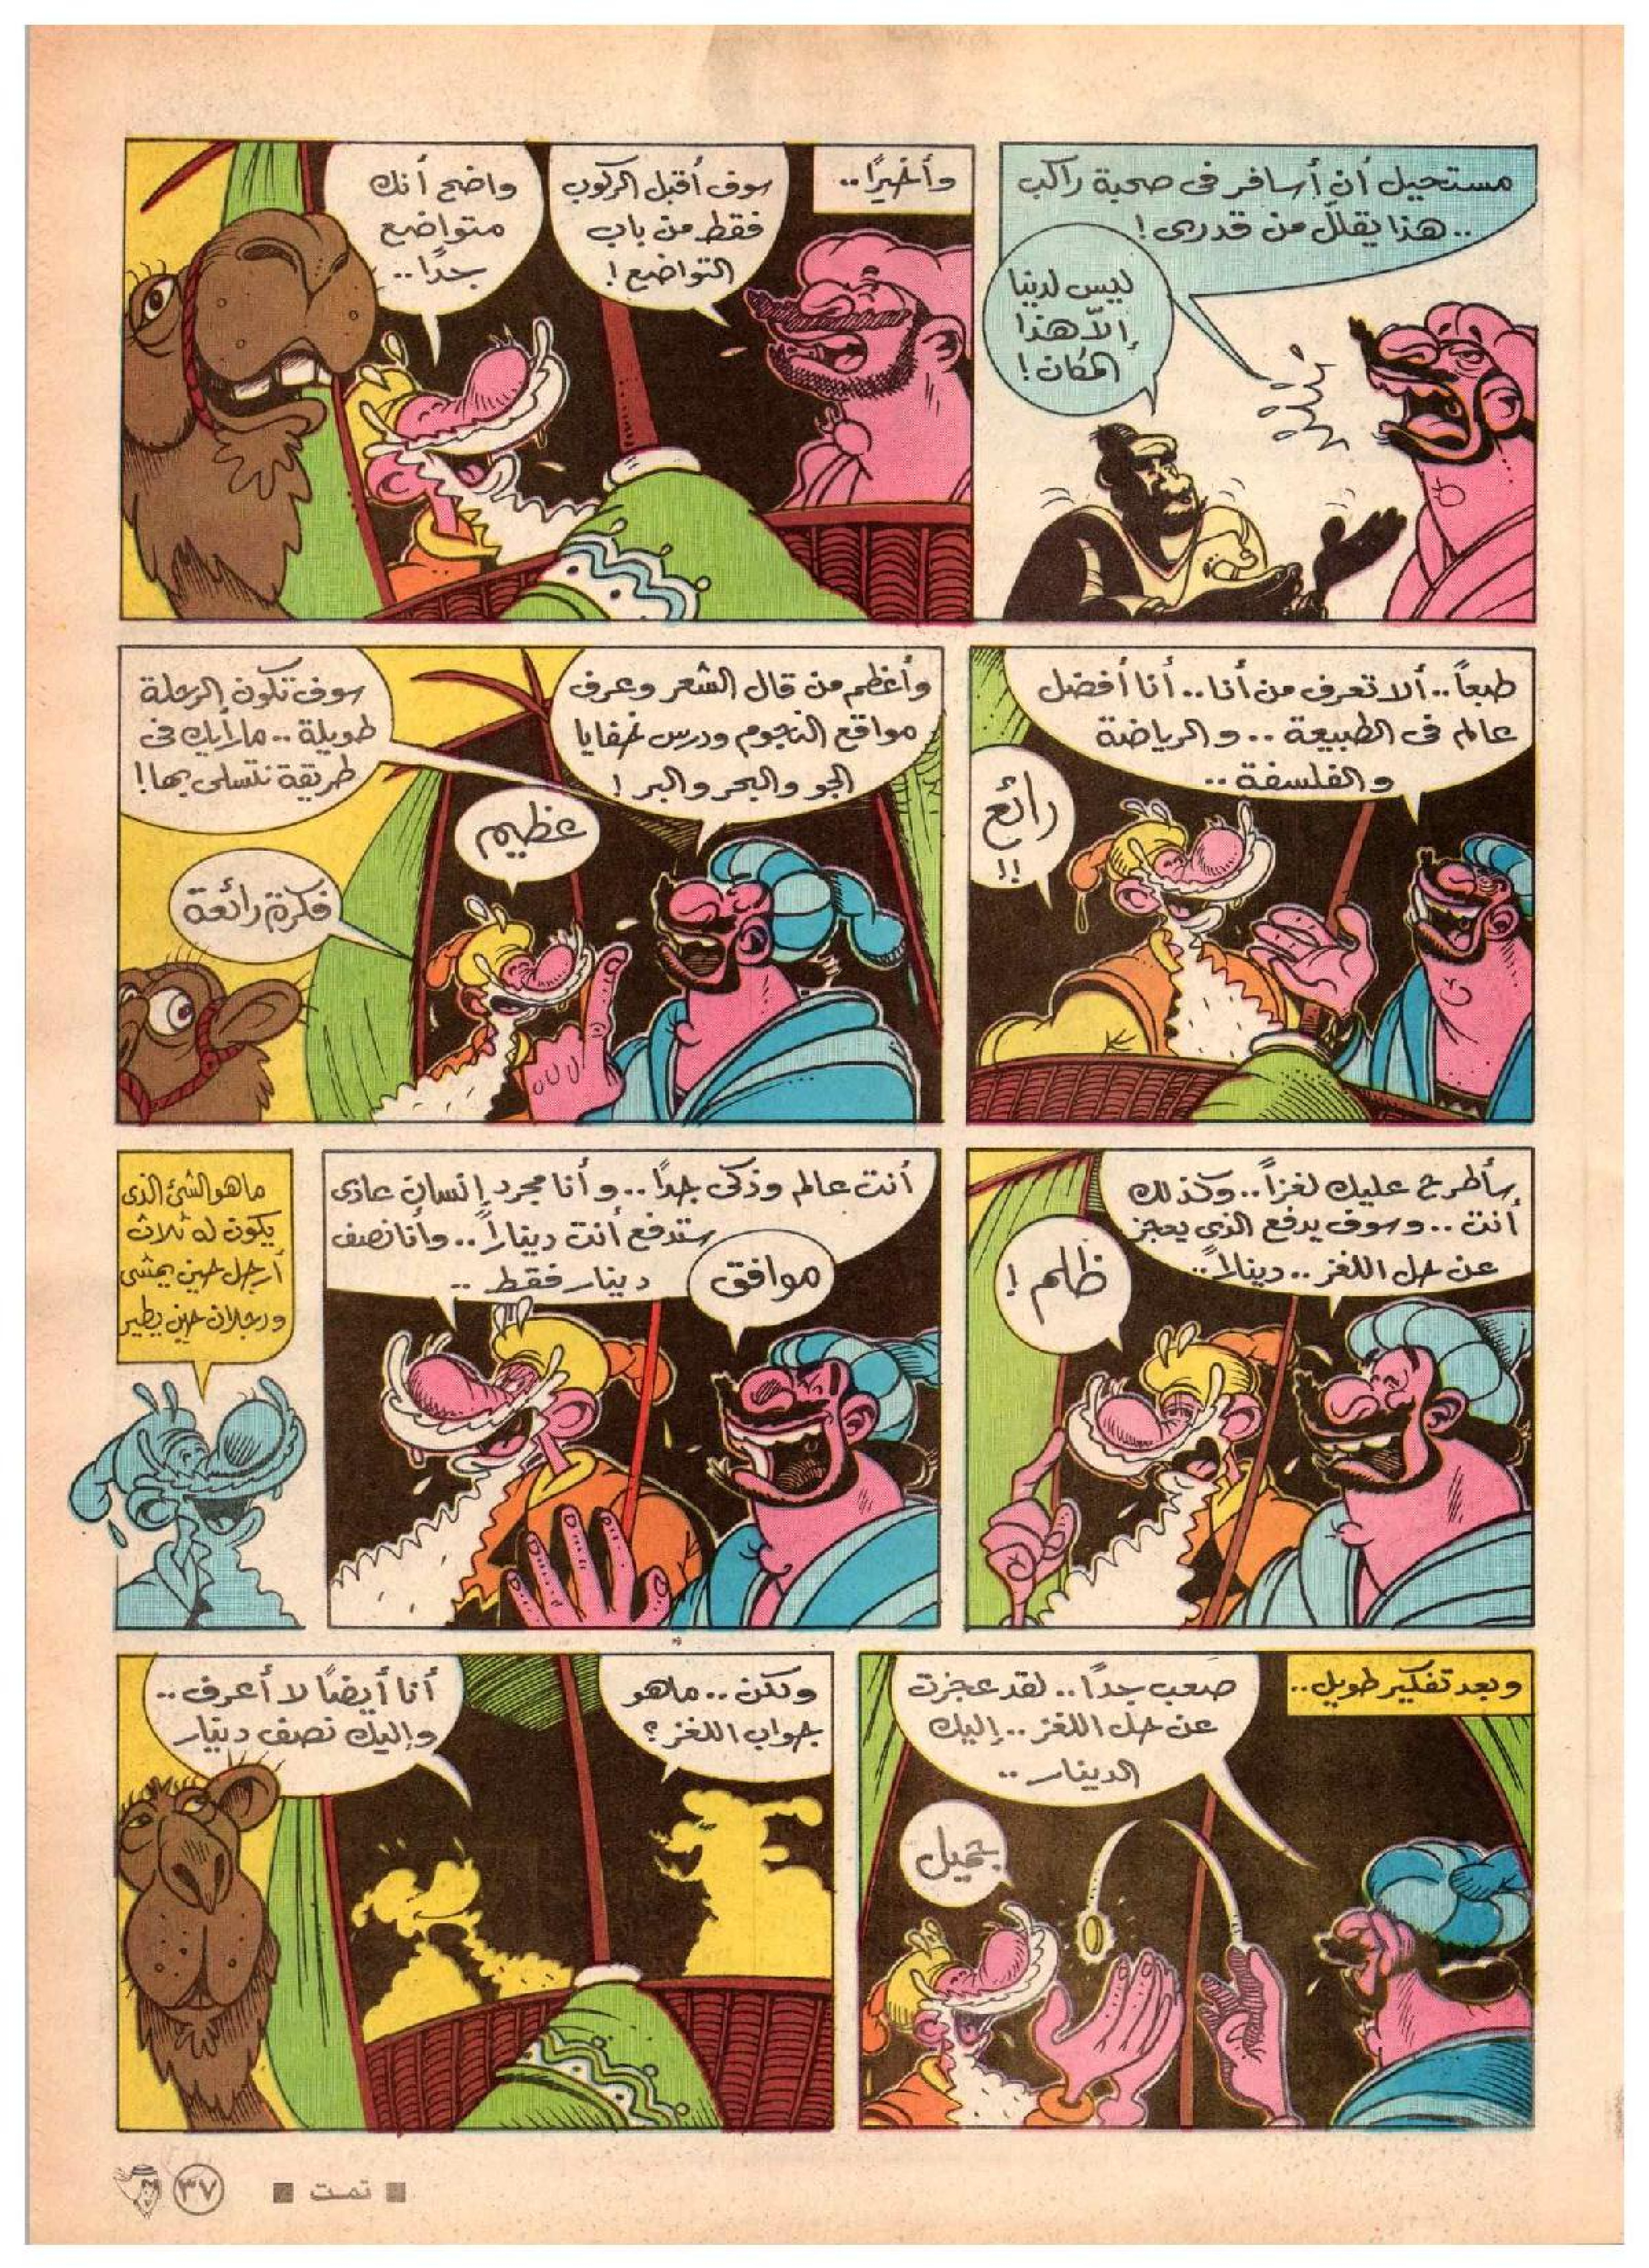 مستحيل أن أسافر فى صحبة راكب
.. هذا يقلل من قدرى !
ليس لدينا
إلاّ هذا
المكان !
وأخيرًا..
سوف أقبل الركوب
فقط من باب
التواضع !
واضح أنك
متواضع
جدًا ..
طبعاً .. ألا تعرف من أنا .. أنا أفضل
عالم فى الطبيعة .. والرياضة
والفلسفة ..
رائع
!!
وأعظم من قال الشعر وعرف
مواقع النجوم ودرس خفايا
الجو والبحر والبر !
عظيم
سوف تكون الرحلة
طويلة .. ما رأيك فى
طريقة نتسلى بها !
فكرة رائعة
سأطرح عليك لغزاً .. وكذلك
أنت .. وسوف يدفع الذى يعجز
عن حل اللغز .. ديناراً ..
ظلم !
أنت عالم وذكى جدًا .. وأنا مجرد إنسان عادى
ستدفع أنت ديناراً .. وأنا نصف
دينار فقط ..
موافق
ما هو الشئ الذى
يكون له ثلاث
أرجل حين يمشى
ورجلان حين يطير
وبعد تفكير طويل ..
صعب جدًا .. لقد عجزت
عن حل اللغز .. إليك
الدينار ..
جميل
ولكن .. ما هو
جواب اللغز ؟
أنا أيضًا لا أعرف ..
وإليك نصف دينار
■ تمت ■
٣٧